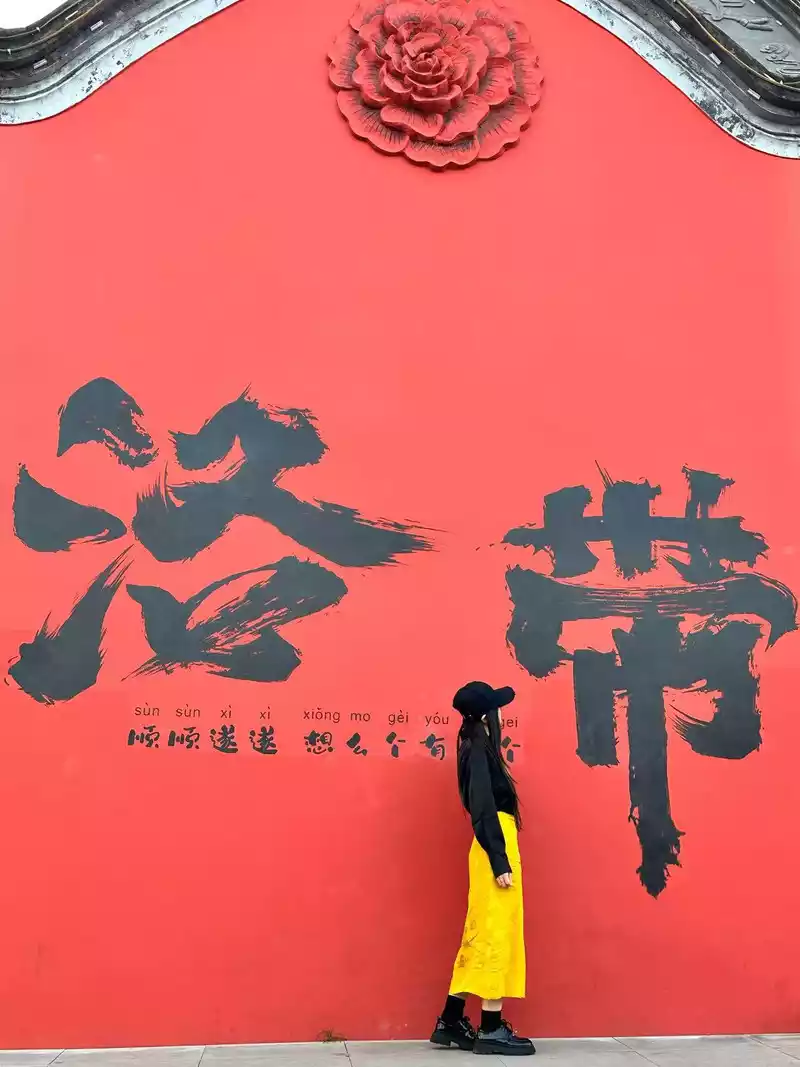 洛带
sùn sùn xì xì xiǒng mo gèi yóu gei
顺顺遂遂 想么个有 个